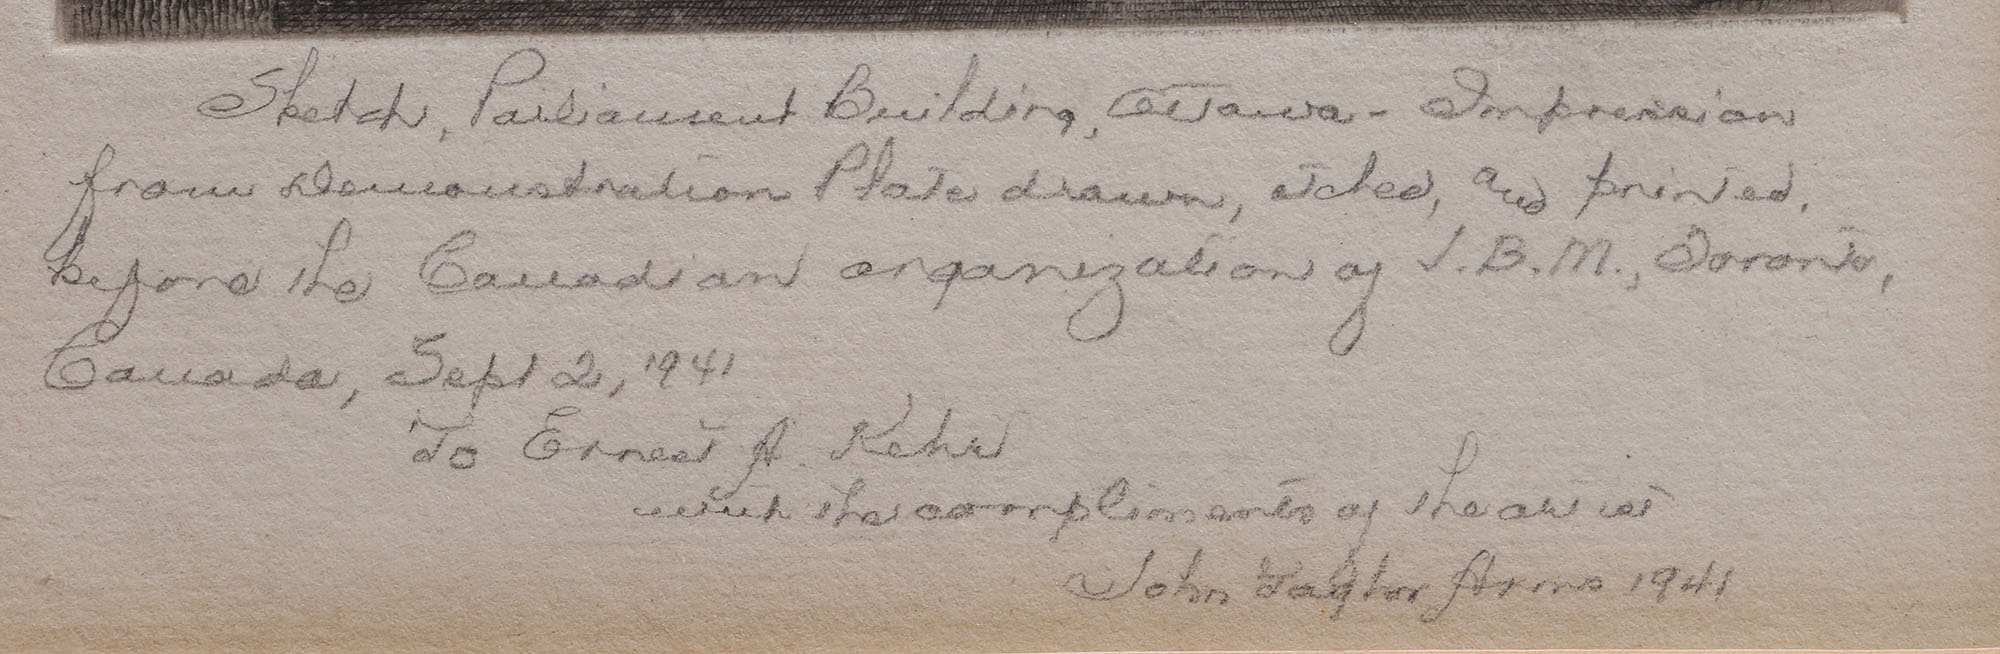 Sketch, Parliament Building, Ottawa - Impression
from Demonstration Plate drawn, etched, and printed,
before the Canadian organization of I.B.M., Toronto,
Canada, Sept 2, 1941
To Ernest A. Kehr
with the compliments of the artist
John Taylor Arms 1941